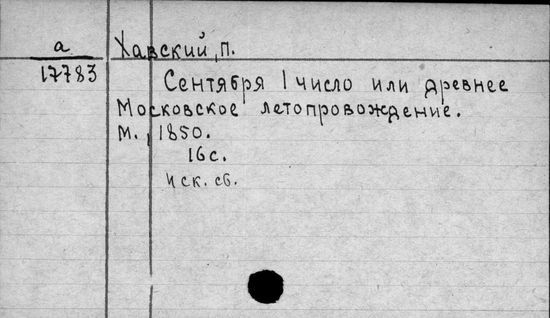 а
17783
Хавский, П.
Сентября 1 число или древнее
Московское летопровождение.
М., 1850.
16 с.
Иск. сб.